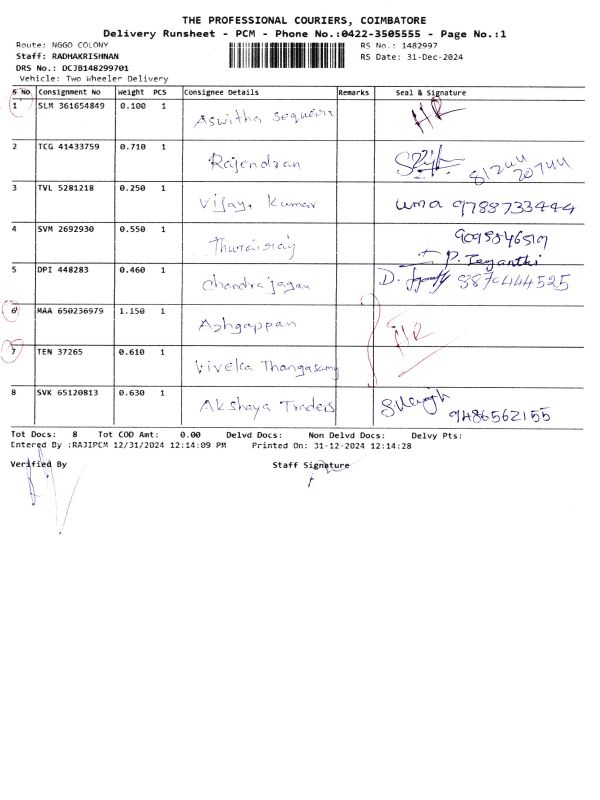 THE PROFESSIONAL COURIERS, COIMBATORE
Delivery Runsheet - PCM - Phone No.:0422-3505555 - Page No.:1
Route: NGGO COLONY RS No.: 1482997
Staff: RADHAKRISHNAN RS Date: 31-Dec-2024
DRS No.: DCJB148299701
Vehicle: Two Wheeler Delivery
S No Consignment No Weight PCS Consignee Details Remarks Seal & Signature
1 SLM 361654849 0.100 1 Aswitha HR
2 TCG 41433759 0.710 1 Rajendran
3 TVL 5281218 0.250 1 Vijaya Kumar uma 9788733444
4 SVM 2692930 0.550 1 Thurairaj
P. Jeyanthi
5 DPI 448283 0.460 1 Chandrajagan D. 8870444525
6 MAA 650236979 1.150 1 Azhgappan HR
7 TEN 37265 0.610 1 Viveka Thangasamy
8 SVK 65120813 0.630 1 Akshaya Traders 9486562155
Tot Docs: 8 Tot COD Amt: 0.00 Delvd Docs: Non Delvd Docs: Delvy Pts:
Entered By :RAJIPCM 12/31/2024 12:14:09 PM Printed On: 31-12-2024 12:14:28
Verified By Staff Signature